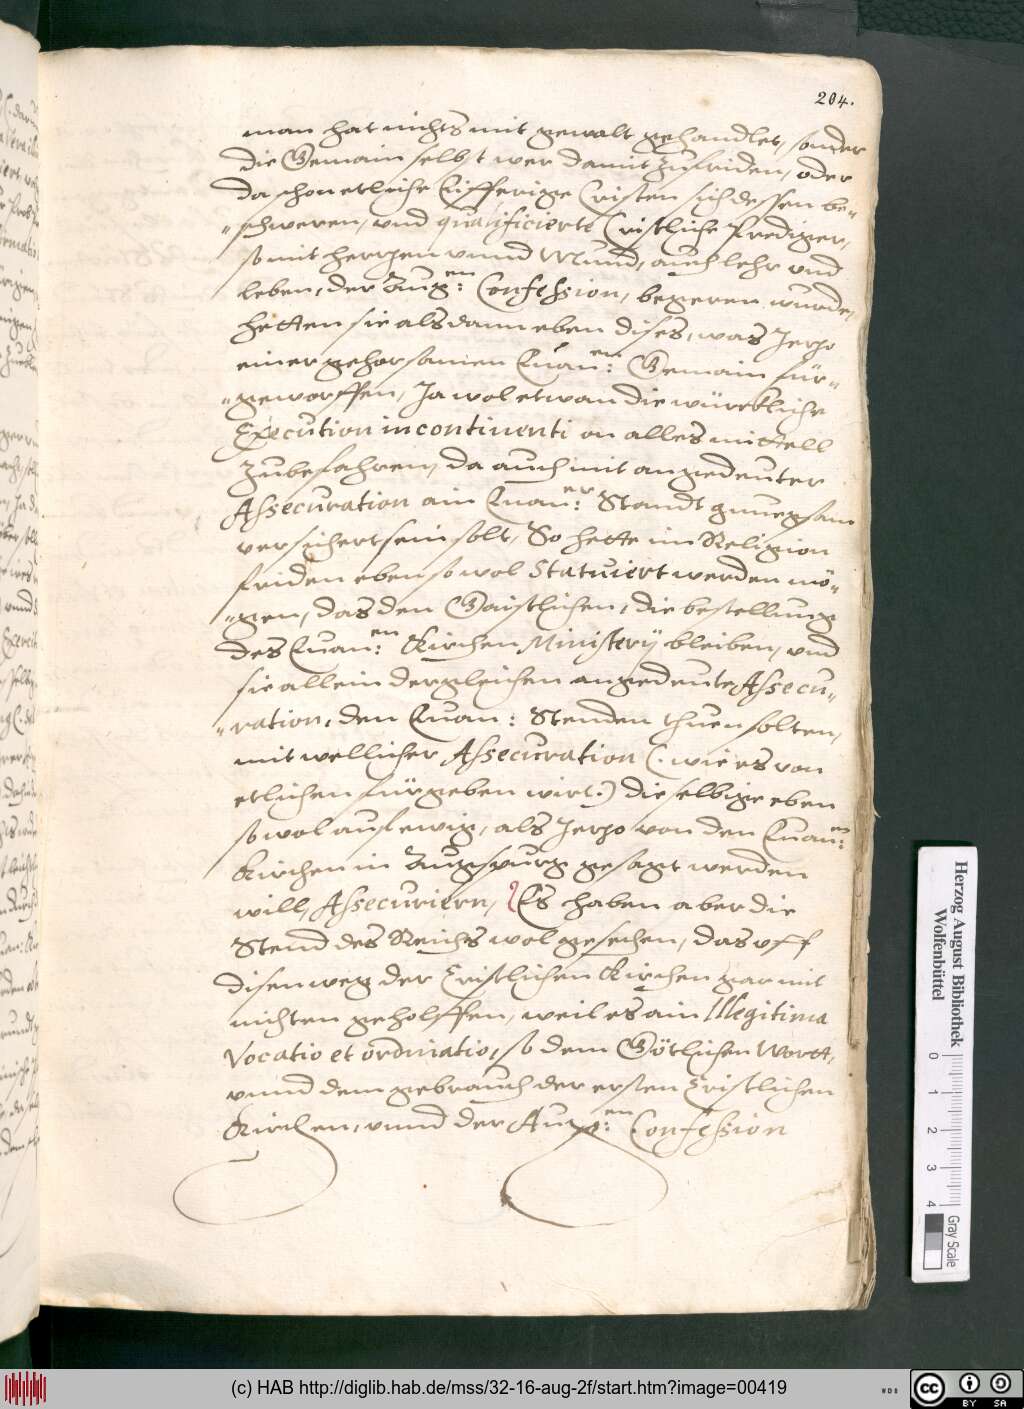 204.
man hat nichts mit gewalt gehandlet, sonder
die Gemain selbst wer damit zufriden, oder
da schon etliche Eifferige Cristen sich dessen be-
-schweren, und qualificierte Cristliche Prediger,
so mit hertzen unnd Mund, auch lehr und
leben, der Aug:en Confession, begeren wurde,
hetten sie als dann eben dises, was Jetzo
einer gehorsamen Euan:en Gemain für-
-geworffen, Ja wol etwan die würckliche
Execution incontinenti on alles mittell
zubefahren, da auch mit angedeuter
Assecuration ain Euan:er Standt gnuegsam
versichert sein solt, So hette im Religion
friden eben so wol Statuiert werden mö-
-gen, das den Gaistlichen, die bestellung
des Euan:en Kirchen Ministerij bleiben, und
sie allein dergleichen angedeute Assecu-
-ration, den Euan: Stenden thuen solten,
mit wellicher Assecuration (: wie es von
etlichen fürgeben wirt :) dieselbige eben
so wol auf ewig, als Jetzo von den Euan:en
Kirchen in Augspurg gesagt werden
will, Assecuriern, Es haben aber die
Stend des Reichs wol gesehen, das uff
disen weg der Cristlichen Kirchen gar mit
nichten geholffen, weil es ain Illegitima
Vocatio et ordinatio, so dem Götlichen Wortt,
unnd dem gebrauch der ersten Cristlichen
Kirchen, unnd der Aug:en Confession
Herzog August Bibliothek
Wolfenbüttel
0 1 2 3 4
Gray Scale
(c) HAB http://diglib.hab.de/mss/32-16-aug-2f/start.htm?image=00419
WDB
cc BY SA